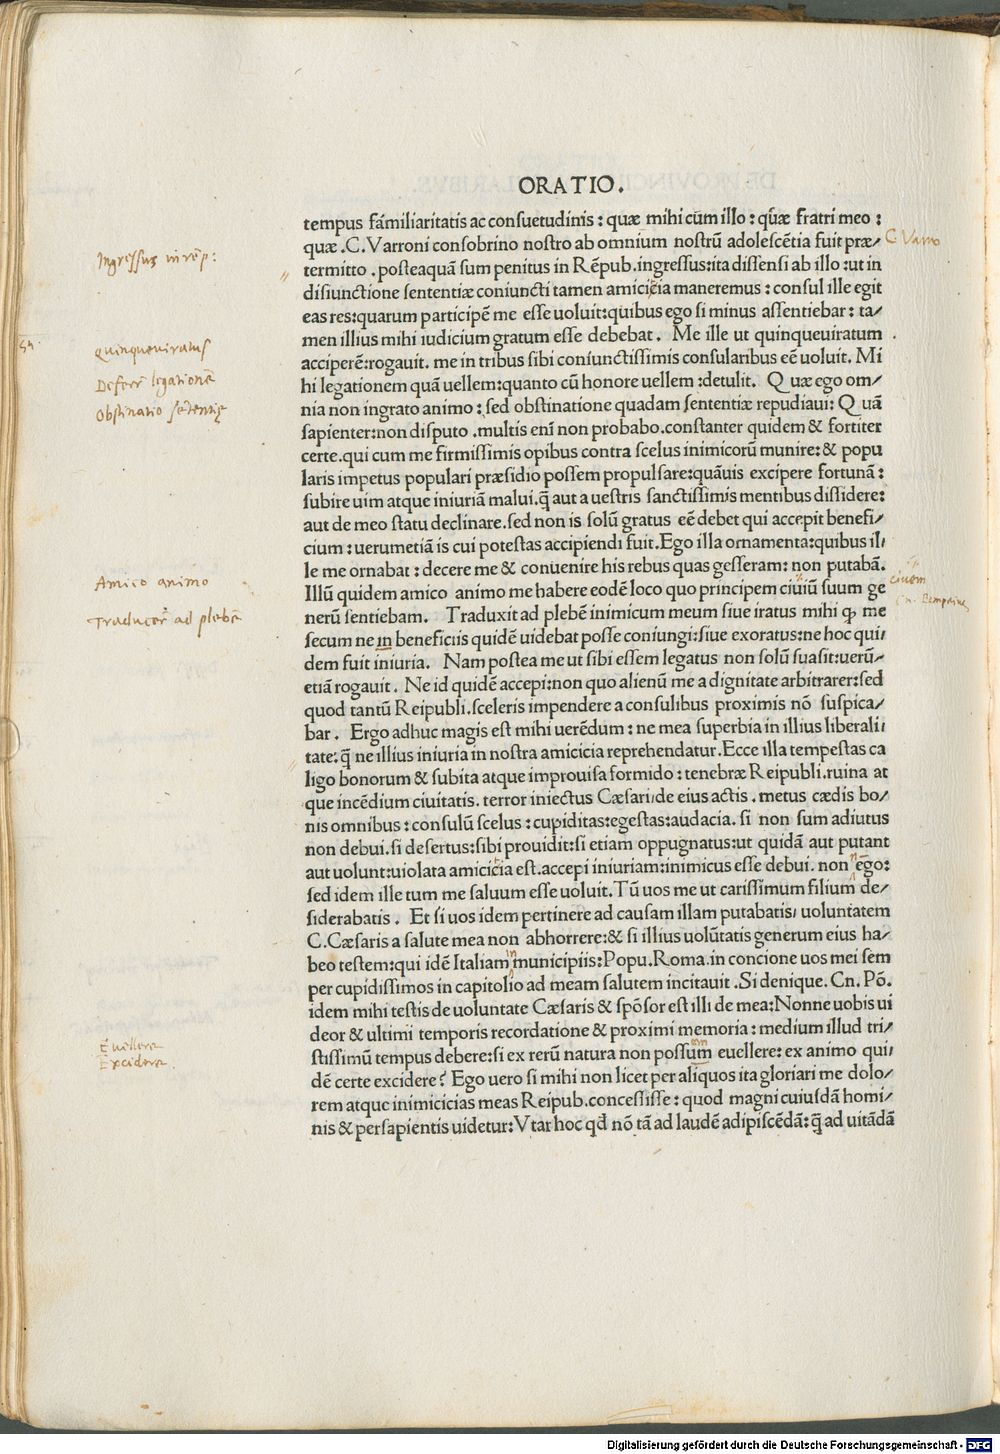 ORATIO.
tempus familiaritatis ac consuetudinis : quæ mihi cum illo : quæ fratri meo :
quæ .C. Varroni consobrino nostro ab omnium nostrū adolescētia fuit præ/
C Varro
termitto . posteaquā sum penitus in Rēpub.ingressus:ita dissensi ab illo :ut in
Ingressus in rēp:
disiunctione sententiæ coniuncti tamen amicicia maneremus : consul ille egit
eas res:quarum participē me esse uoluit:quibus ego si minus assentiebar : ta/
men illius mihi iudicium gratum esse debebat . Me ille ut quinqueuiratum
Quinqueviratus
acciperē:rogauit. me in tribus sibi coniunctissimis consularibus eē uoluit. Mi
hi legationem quā uellem:quanto cū honore uellem :detulit. Quæ ego om/
Deferr legationē
nia non ingrato animo : sed obstinatione quadam sententiæ repudiaui: Quā
Obstinatio sētentię
sapienter:non disputo .multis enī non probabo.constanter quidem & fortiter
certe.qui cum me firmissimis opibus contra scelus inimicorū munire: & popu
laris impetus populari præsidio possem propulsare:quāuis excipere fortunā :
subire uim atque iniuriā malui.q̄ aut a uestris sanctissimis mentibus dissidere:
aut de meo statu declinare.sed non is solū gratus eē debet qui accepit benefi/
cium : uerumetiā is cui potestas accipiendi fuit.Ego illa ornamenta:quibus il/
le me ornabat : decere me & conuenire his rebus quas gesseram: non putabā.
Illū quidem amico animo me habere eodē loco quo principem ciuiū suum ge
Amico animo
civem
nerū sentiebam. Traduxit ad plebē inimicum meum siue iratus mihi ꝙ me
Traducer ad plebē
secum ne in beneficiis quidē uidebat posse coniungi:siue exoratus:ne hoc qui/
dem fuit iniuria. Nam postea me ut sibi essem legatus non solū suasit:uerū/
etiā rogauit . Ne id quidē accepi:non quo alienū me a dignitate arbitrarer:sed
quod tantū Reipubli.sceleris impendere a consulibus proximis nō suspica/
bar . Ergo adhuc magis est mihi uerēdum : ne mea superbia in illius liberali/
tate: q̄ ne illius iniuria in nostra amicicia reprehendatur.Ecce illa tempestas ca
ligo bonorum & subita atque improuisa formido : tenebræ Reipubli.ruina at
que incēdium ciuitatis. terror iniectus Cæsari/de eius actis . metus cædis bo/
nis omnibus : consulū scelus : cupiditas:egestas:audacia. si non sum adiutus
non debui.si desertus:sibi prouidit:si etiam oppugnatus:ut quidā aut putant
aut uolunt:uiolata amicicia est.accepi iniuriam:inimicus esse debui. non ego:
sed idem ille tum me saluum esse uoluit.Tū uos me ut carissimum filium de/
siderabatis . Et si uos idem pertinere ad causam illam putabatis/ uoluntatem
C.Cæsaris a salute mea non abhorrere:& si illius uolūtatis generum eius ha/
beo testem:qui idē Italiam municipiis:Popu.Roma.in concione uos mei sēm
per cupidissimos in capitolio ad meam salutem incitauit .Si denique. Cn. Pō.
idem mihi testis de uoluntate Cæsaris & spōsor est illi de mea:Nonne uobis ui
deor & ultimi temporis recordatione & proximi memoria : medium illud tri/
stissimū tempus debere:si ex rerū natura non possum euellere: ex animo qui/
Evellere
dē certe excidere? Ego uero si mihi non licet per aliquos ita gloriari me dolo/
Excidere.
rem atque inimicicias meas Reipub.concessisse : quod magni cuiusdā homi/
nis & persapientis uidetur:Vtar hoc qd̄ nō tā ad laudē adipiscēdā: q̄ ad uitādā
Digitalisierung gefördert durch die Deutsche Forschungsgemeinschaft - DFG